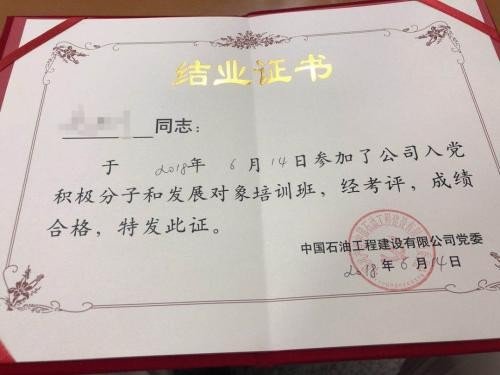 结业证书
同志：
于 2018年 6月14日参加了公司入党
积极分子和发展对象培训班，经考评，成绩
合格，特发此证。
中国石油工程建设有限公司党委
2018年6月14日